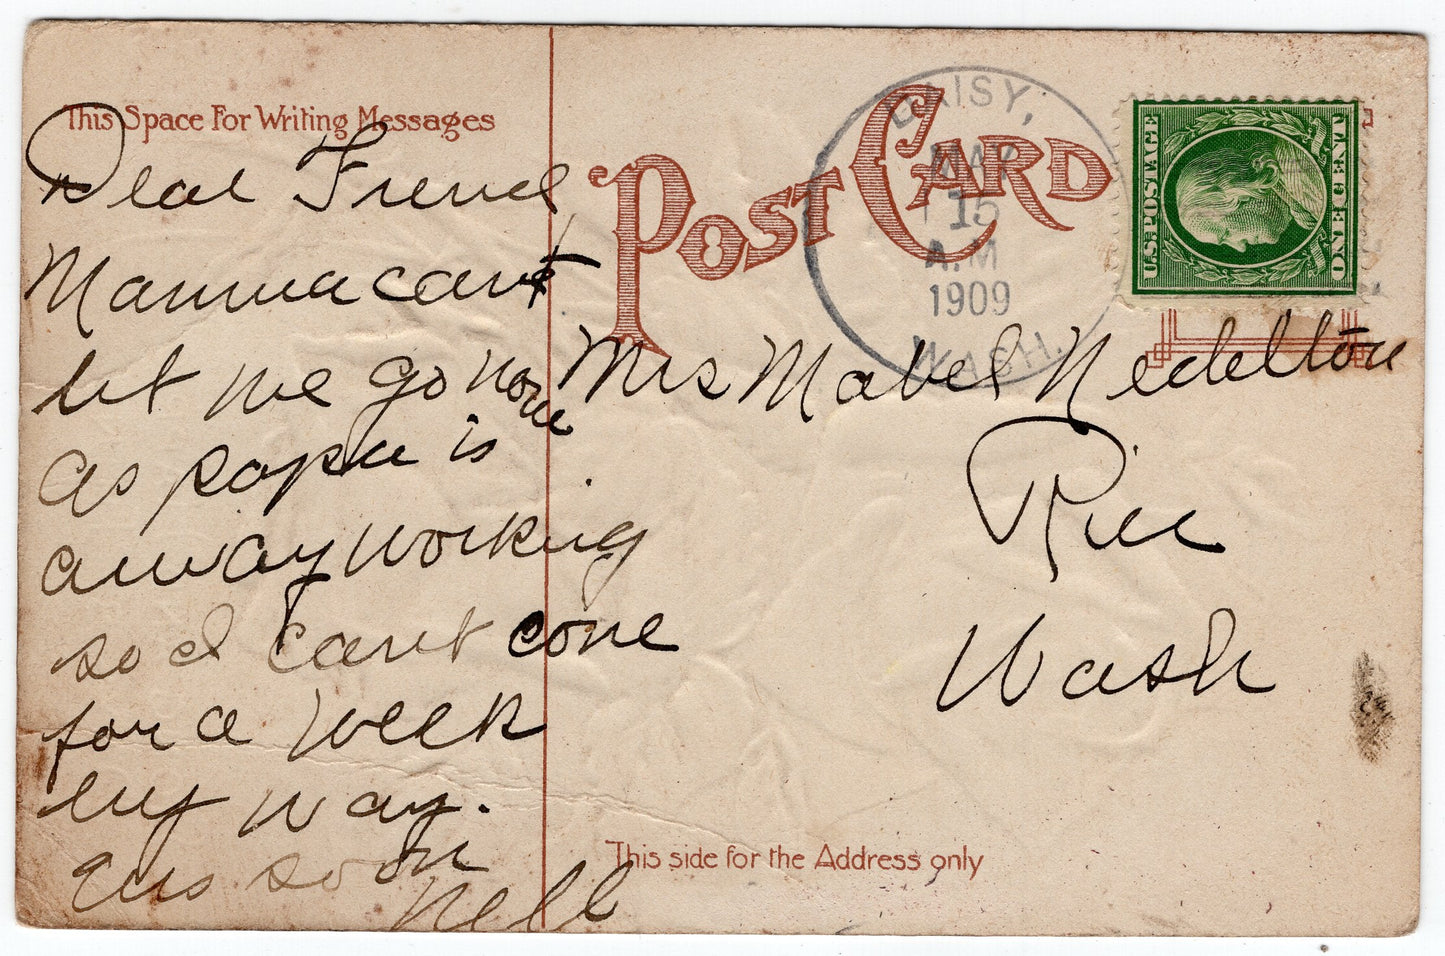 This Space For Writing Messages
Dear Friend
Mamma cant
let me go now
as papa is
away working
so I cant come
for a week
any way.
Ans soon
Nell
POST CARD
DAISY,
MAY
15
A.M
1909
WASH.
U.S. POSTAGE
ONE CENT
Mrs Mabel Nedelton
Rice
Wash
This side for the Address only